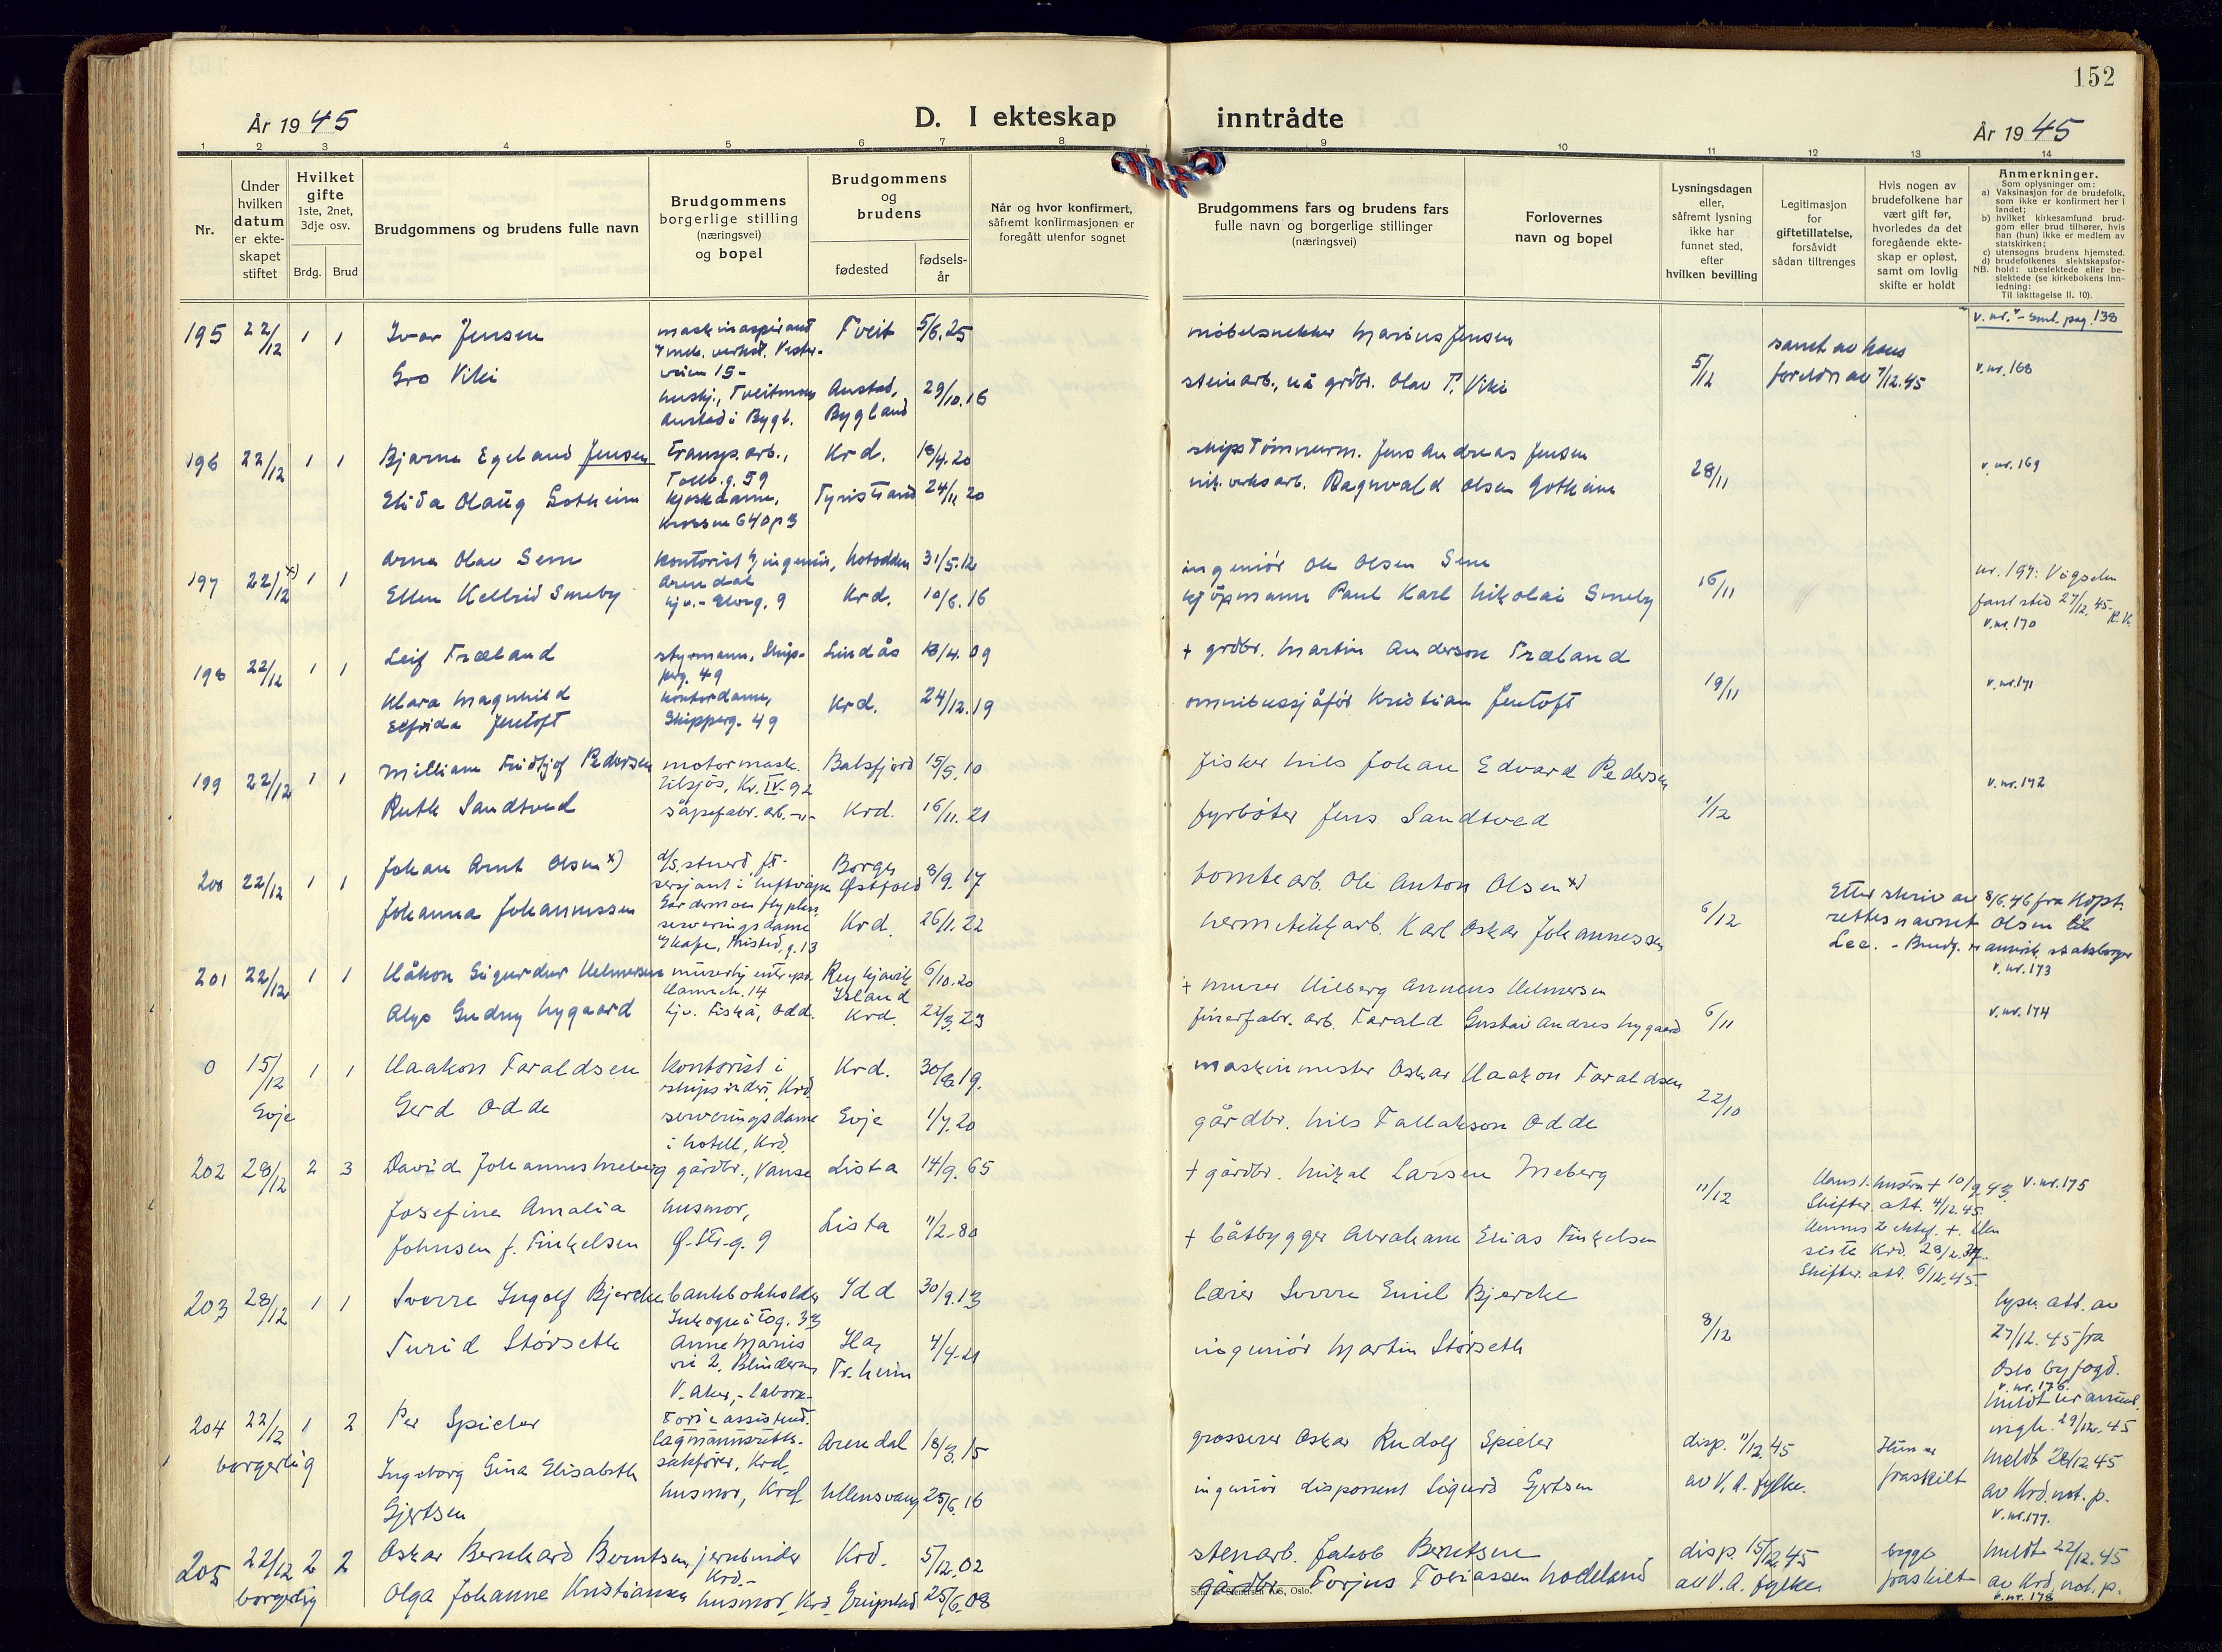 152
År 1945
D. I ekteskap inntrådte
År 1945
1 2 3 4 5 6 7 8 9 10 11 12 13 14
Nr.
Under hvilken datum er ekteskapet stiftet
Hvilket gifte 1ste, 2net, 3dje osv.
Brdg. Brud
Brudgommens og brudens fulle navn
Brudgommens borgerlige stilling (næringsvei) og bopel
Brudgommens og brudens
fødested
fødselsår
Når og hvor konfirmert, såfremt konfirmasjonen er foregått utenfor sognet
Brudgommens fars og brudens fars fulle navn og borgerlige stillinger (næringsvei)
Forlovernes navn og bopel
Lysningsdagen eller, såfremt lysning ikke har funnet sted, efter hvilken bevilling
Legitimasjon for giftetillatelse, forsåvidt sådan tiltrenges
Hvis nogen av brudefolkene har vært gift før, hvorledes da det foregående ekteskap er opløst, samt om lovlig skifte er holdt
Anmerkninger.
Som oplysninger om:
a) Vaksinasjon for de brudefolk, som ikke er konfirmert her i landet;
b) hvilket kirkesamfund brudgom eller brud tilhører, hvis han (hun) ikke er medlem av statskirken;
c) utensogns brudens hjemsted.
d) brudefolkenes slektskapsforhold: ubeslektede eller beslektede (se kirkebokens innledning:
NB.
Til iakttagelse II. 10).
v. nr. - smt. pag. 138
195 22/12 1 1 Ivar Jensen maskinaspirant Tveit 5/6.25 møbelsnekker Marius Jensen
Gro Viki Austad, Bygland 29/10.16 steinarb., nå grdbr. Olav T. Viki 5/12 samt. av hans foreldre av 7/12.45 v. nr. 168
196 22/12 1 1 Bjarne Egeland Jensen transp.arb., Tollb.g. 59 Krd. 18/4.20 skipstømmerm. Jens Andreas Jensen
Elida Olaug Gotheim kjoskdame, Kristiand 24/11 20 nik.verksarb. Ragnvald Olsen Gotheim 28/11 v. nr. 169
197 22/12 x) 1 1 Arne Olav Sem kontorist & ingeniør, Arendal Notodden 31/5.12 ingeniør Ole Olsen Sem
Ellen Kellrid Smeby hjv. - Elveg. 9 Krd. 10/6.16 kjøpmann Paul Karl Nikolai Smeby 16/11 nr. 197: Vigselen fant sted 27/12.45. R.K. v. nr. 170
198 22/12 1 1 Leif Træland styrmann, Skipperg. 49 Lindås 18/4.09 + grdbr. Martin Anderson Træland
Klara Magnhild Elfrida Jentoft kontordame, Skipperg. 49 Krd. 24/12.19 omnibussjåfør Kristian Jentoft 19/11 v. nr. 171
199 22/12 1 1 William Fridtjof Pedersen motormask. tilsjøs, Kr. IV. 92 Balsfjord 15/5.10 fisker Nils Johan Edvard Pedersen
Ruth Sandtved såpefabr. arb. -"- Krd. 16/11.21 fyrbøter Jens Sandtved 1/12 v. nr. 172
200 22/12 1 1 Johan Arnt Olsen x) Borge, Østfold 8/9.17 tomtearb. Ole Anton Olsen x)
Johanna Johannessen serveringsdame Krd. 26/1.22 hermetikkarb. Karl Oskar Johannessen 6/12 Etter skriv av 8/6.46 fra Kopt. rettes navnet Olsen til Lee. - Brudg. er amerik. statsborger v. nr. 173
201 22/12 1 1 Håkon Sigurdur Helmersen Reykjavik Island 6/10.20 + murer Hilberg Annæus Helmersen
Alys Gudny Nygaard hjv. Fiskå, Odd. Krd. 22/3.23 finerfabr. arb. Tarald Gustav Andres Nygaard 6/11 v. nr. 174
0 15/12 Evje 1 1 Haakon Taraldsen kontorist i skipsrederi, Krd. Krd. 30/8 19. maskinmester Oskar Haakon Taraldsen
Gerd Odde serveringsdame i hotell, Krd. Evje 1/7.20 gårdbr. Nils Tallakson Odde 22/10
202 28/12 2 3 David Johannes Meberg gårdbr., Vanse Lista 14/9.65 + gårdbr. Mikal Larsen Meberg
Josefine Amalia Johnsen f. Finkelsen husmor, Ø. Str.g. 9 Lista 11/2.80 + båtbygger Abraham Elias Finkelsen 11/12 Hans 1. hustru + 10/9.43. Skifteratt. 4/12.45. Hennes 2 ektef. +. Den siste Krd. 28/2.37. Skifteratt. 6/12.45. v. nr. 175
203 28/12 1 1 Sverre Ingolf Bjercke bankbokholder Idd 30/9.13 lærer Sverre Emil Bjercke
Turid Størseth Anne Maries vei 2, Blindern V. Aker, - laboratorieassistent. Tr.heim 4/4.21 ingeniør Martin Størseth 8/12 lysn. att. av 27/12.45 fra Oslo byfogd. v. nr. 176.
204 22/12 borgerlig 1 2 Per Spieler lagmannsrettssakfører, Krd. Arendal 18/3.15 grosserer Oskar Rudolf Spieler disp. 11/12.45 av V. A. fylke. Hun er fraskilt
Ingeborg Gina Elisabeth Gjertsen husmor, Krd. Ullensvang 25/6.16 ingeniør disponent Sigurd Gjertsen 29/12.45 meldt 28/12.45 av Krd. not. p. v. nr. 177.
205 22/12 borgerlig 2 2 Oskar Bernhard Berntsen jernbinder Krd.- Krd. 5/12.02 stenarb. Jakob Berntsen disp. 15/12.45 av V. A. fylke begge fraskilt meldt 22/12.45 av Krd. not. p. v. nr. 178
Olga Johanne Kristiansen husmor, Krd. Grimstad 25/6.08 gårdbr. Torjus Tobiassen Hodeland